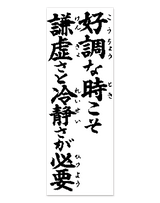 好調な時こそ
謙虚さと冷静さが必要